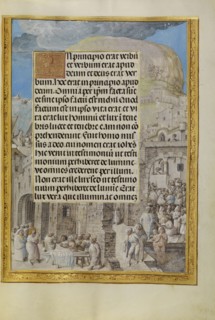 In principio erat verbū
et verbum erat apud
deum et deus erat ver
bum. hoc erat in principio apud
deum. Omnia per ipm facta sūt
et sine ipso factū est nichil. Quod
factum est in ipso vita erat et vi
ta erat lux hominū et lux ī tene
bris lucet et tenebre eam non cō
prehenderunt fuit homo mis
sus a deo cui nomen erat iohēs
hic venit in testimoniū ut testi
monium perhiberet de lumine
ut omnes crederent per illum.
Non erat ille lux sed ut testimo
nium perhiberet de lumine Erat
lux vera que illuminat omnes